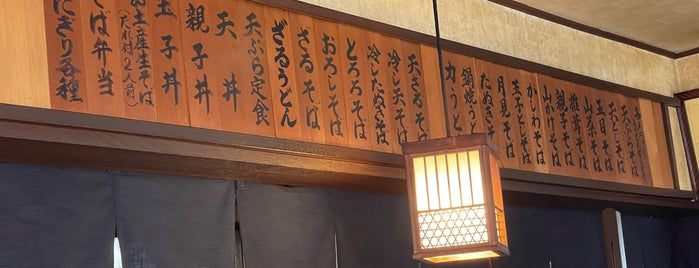 天とじそば
五目そば
山菜そば
親子そば
椎茸そば
山かけそば
かしわそば
玉子とじそば
月見そば
たぬきそば
鍋焼うど
力うど
天ざるそば
冷し天そば
冷したぬきそば
とろろそば
おろしそば
ざるそば
ざるうどん
天ぷら定食
天丼
親子丼
玉子丼
お土産生そば
(たれ付2人前)
そば弁当
にぎり各種